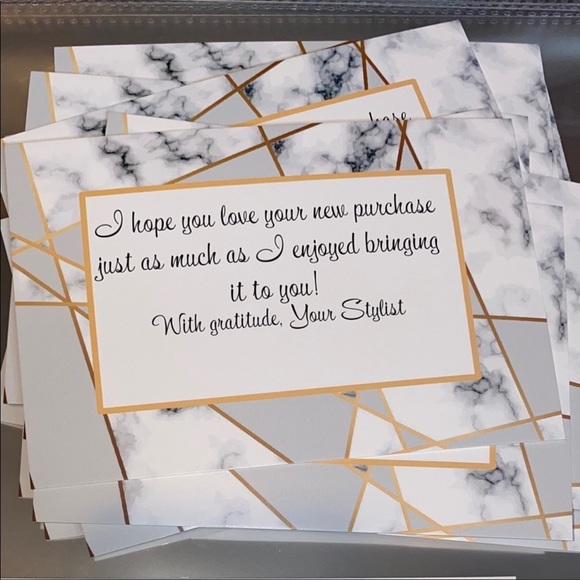 hase
I hope you love your new purchase
just as much as I enjoyed bringing
it to you!
With gratitude, Your Stylist